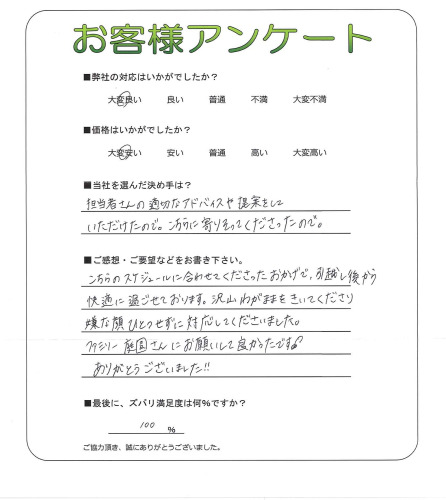 お客様アンケート
■弊社の対応はいかがでしたか？
大変良い 良い 普通 不満 大変不満
■価格はいかがでしたか？
大変安い 安い 普通 高い 大変高い
■当社を選んだ決め手は？
担当者さんの適切なアドバイスや提案をして
いただけたので。こちらに寄りそってくださったので。
■ご感想・ご要望などをお書き下さい。
こちらのスケジュールに合わせてくださったおかげで、引越し後から
快適に過ごせております。沢山わがままをきいてくださり
嫌な顔ひとつせずに対応してくださいました。
ファミリー庭園さんにお願いして良かったです♪
ありがとうございました!!
■最後に、ズバリ満足度は何%ですか？
100 %
ご協力頂き、誠にありがとうございました。